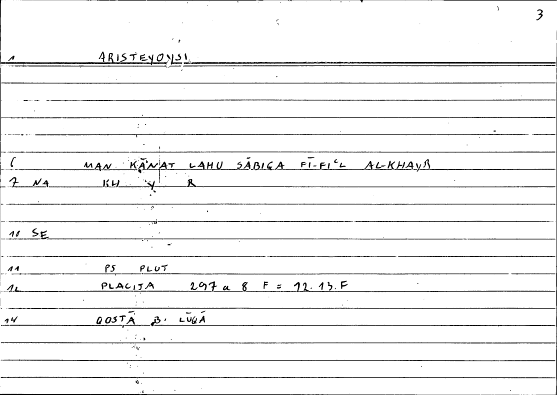 3
1 ARISTEYOYSI
6 MAN KĀNAT LAHU SĀBIGA FĪ-FIʿL AL-KHAYR
7 NA KH Y R
10 SE
11 PS PLUT
12 PLACITA 297 a 8 F = 12.13.F
14 QOSṬĀ B. LŪQĀ